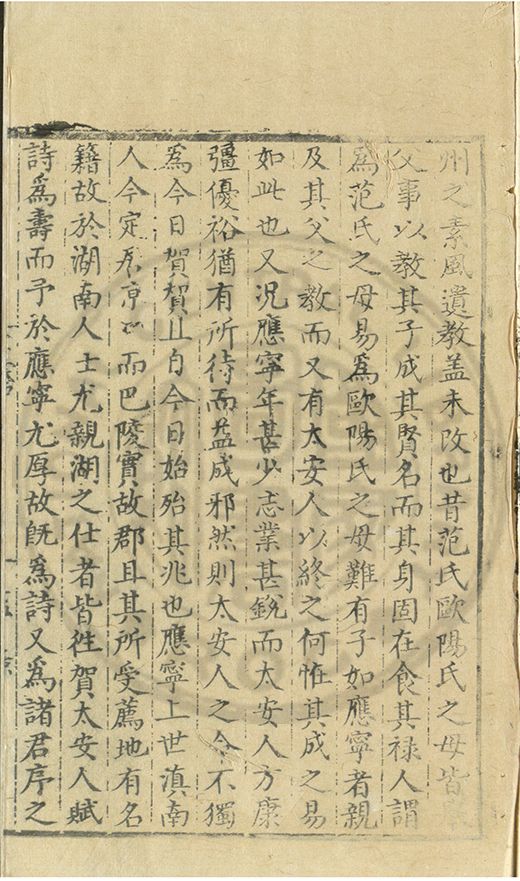 州之素風遺教盖未改也昔范氏歐陽氏之母皆
父事以教其子成其賢名而其身固在食其禄人謂
為范氏之母易為歐陽氏之母難有子如應寧者親
及其父之教而又有太安人以終之何惟其成之易
如此也又况應寧年甚少志業甚銳而太安人方康
彊優裕猶有所待而益成邪然則太安人之今不獨
為今日賀賀且自今日始殆其兆也應寧上世滇南
人今定居京口而巴陵實故郡且其所受薦地有名
籍故於湖南人士尤親湖之仕者皆徃賀太安人賦
詩為壽而予於應寧尤厚故旣為詩又為諸君序之